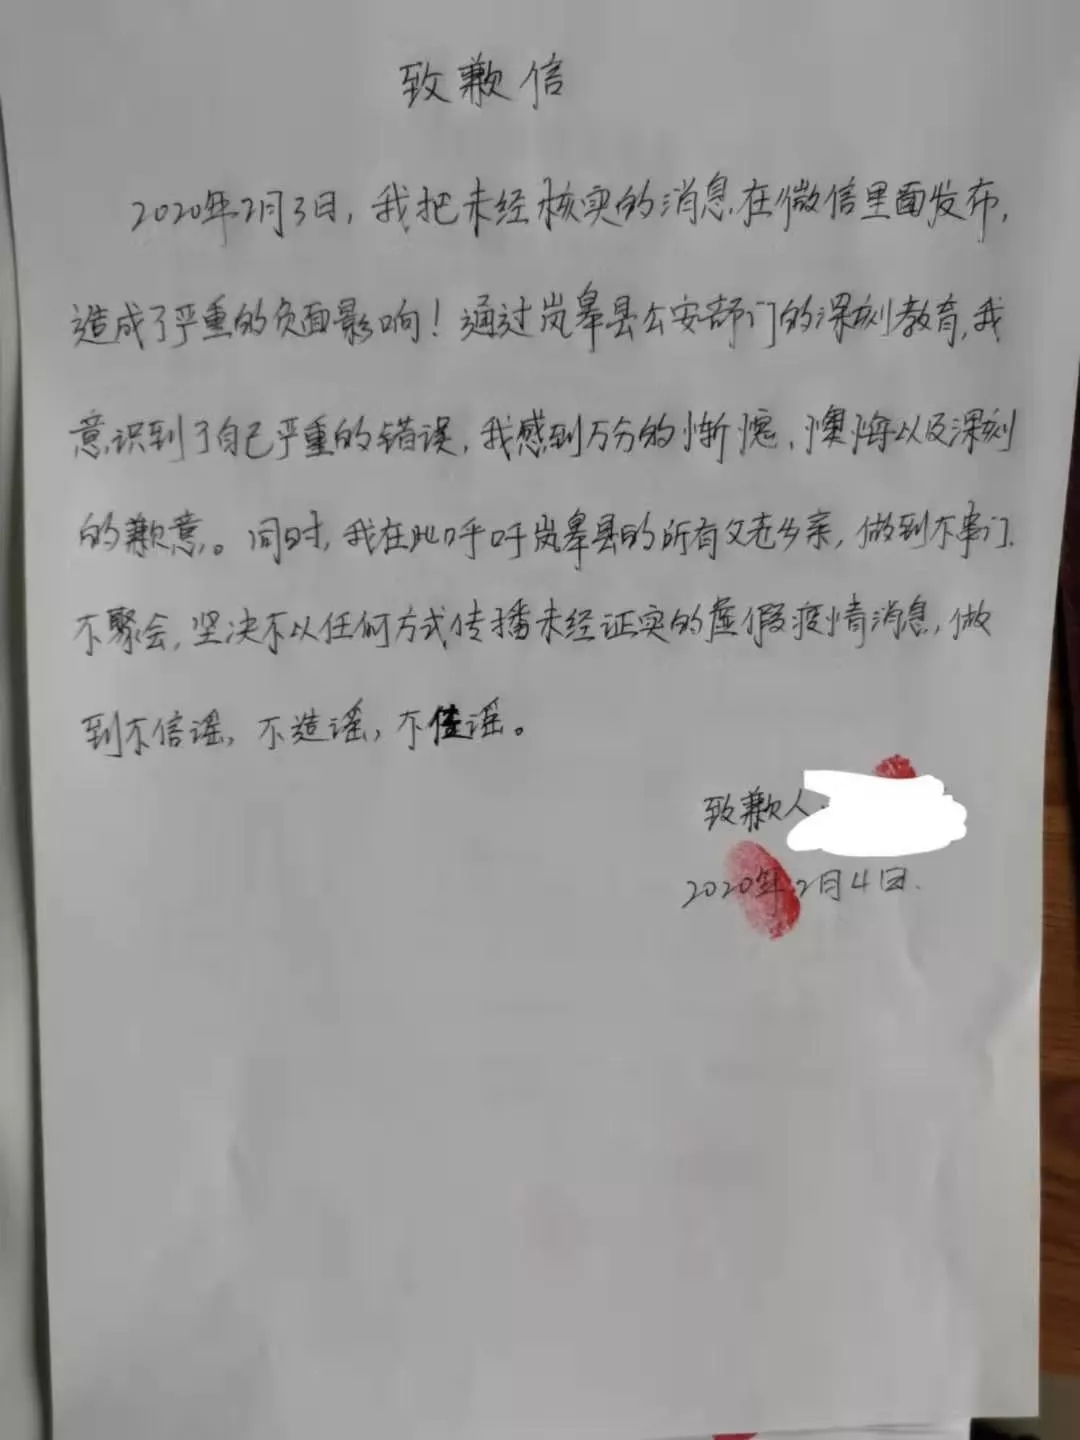 致歉信
2020年2月3日，我把未经核实的消息在微信里面发布，
造成了严重的负面影响！通过岚皋县公安部门的深刻教育，我
意识到了自己严重的错误，我感到万分的惭愧、懊悔以及深刻
的歉意。同时，我在此呼吁岚皋县的所有父老乡亲，做到不串门、
不聚会，坚决不以任何方式传播未经证实的虚假疫情消息，做
到不信谣，不造谣，不传谣。
致歉人：
2020年2月4日.